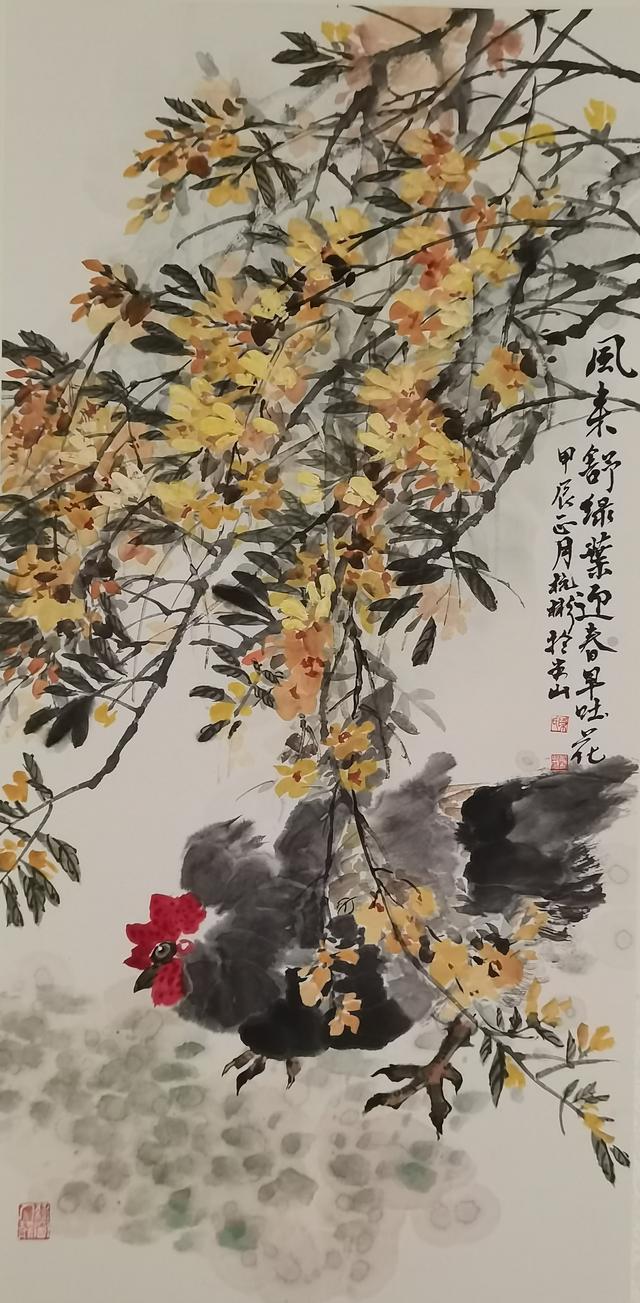 風來舒綠葉迎春早吐花
甲辰正月杭彬於米山